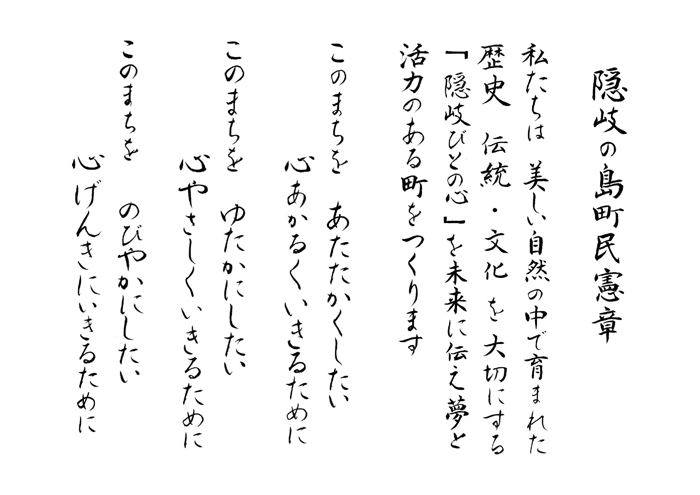 隠岐の島町民憲章
私たちは 美しい自然の中で育まれた
歴史 伝統・文化 を大切にする
「隠岐びとの心」を未来に伝え夢と
活力のある町をつくります
このまちを あたたかくしたい
心あかるくいきるために
このまちを ゆたかにしたい
心やさしくいきるために
このまちを のびやかにしたい
心げんきにいきるために